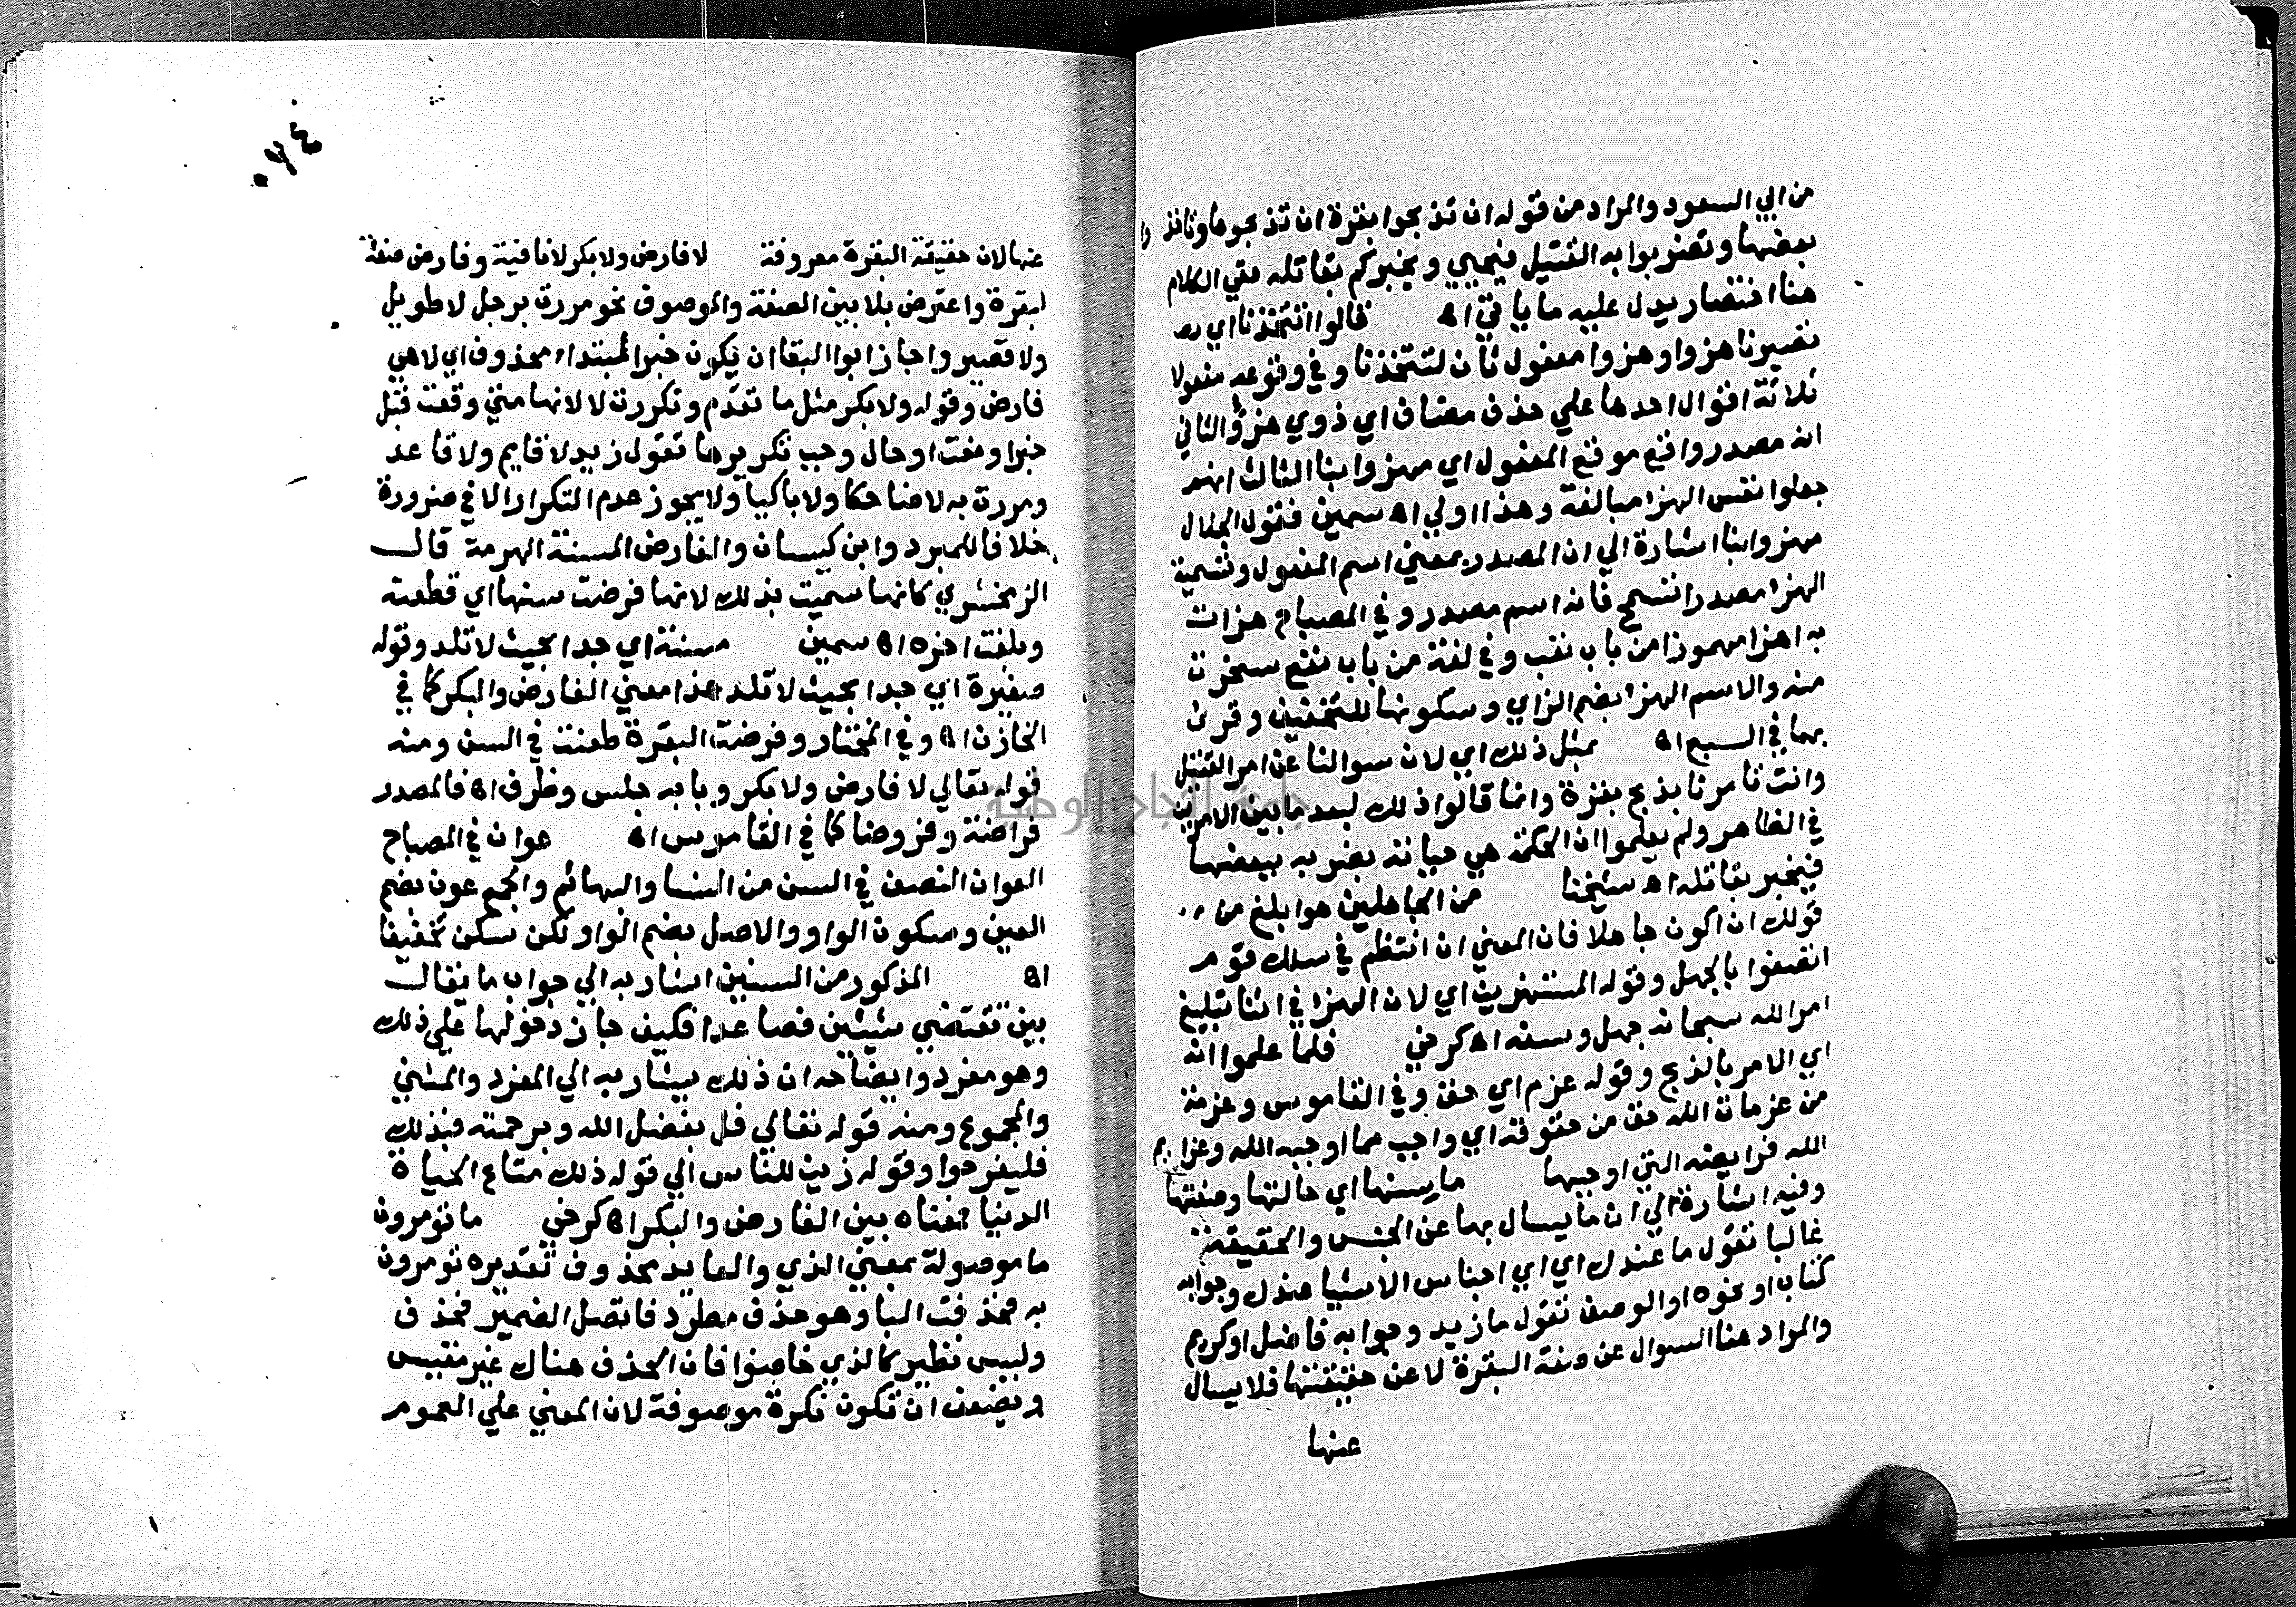 من ابي السعود والمراد من قوله ان تذبحوا بقرة ان تذبحوها وتاخذوا
بعضها وتضربوا به القتيل فيحيي ويخبركم بقاتله ففي الكلام
هنا اختصار يدل عليه ما ياتي اه قالوا اتتخذنا اي
تصيرنا هزوا وهزوا مفعول ثان لتتخذنا وفي وقوعه مفعولا
ثلاثة اقوال احدها علي حذف مضاف اي ذوي هزؤ والثاني
انه مصدر واقع موقع المفعول اي مهزوا بنا الثالث انهم
جعلوا نفس الهزا مبالغة وهذا اولي اه سمين فقول الجلال
مهزوا بنا اشارة الي ان المصدر بمعني اسم المفعول وتسمية
الهزا مصدرا تسمح فانه اسم مصدر وفي المصباح هزات
به اهزا مهموزا من باب تعب وفي لغة من باب نفع سخرت
منه والاسم الهزا بضم الزاي وسكونها للتخفيف وقرئ
بهما في السبع اه بمثل ذلك اي لان سوالنا عن امر القتيل
وانت تامرنا بذبح بقرة وانما قالوا ذلك لبعد ما بين الامرين
في الظاهر ولم يعلموا ان الحكمة هي حياته بضربه ببعضها
فيخبر بقاتله اه شيخنا من الجاهلين هو ابلغ من
قولك ان اكون جاهلا فان المعني ان انتظم في سلك قوم
اتصفوا بالجهل وقوله المستهزين اي لان الهزا في اثنا تبليغ
امر الله سبحانه جهل وسفه اه كرخي فلما علموا انه
اي الامر بالذبح وقوله عزم اي حق وفي القاموس وعزمة
من عزمات الله حق من حقوقه اي واجب مما اوجبه الله وعزايم
الله فرايضه التي اوجبها ما سنها اي حالتها وصفتها
وفيه اشارة الي ان ما يسال بها عن الجنس والحقيقة
غالبا تقول ما عندك اي اي اجناس الاشيا عندك وجوابه
كتاب او نحوه او الوصف تقول ما زيد وجوابه فاضل او كريم
والمراد هنا السوال عن صفة البقرة لا عن حقيقتها فلا يسال
عنها
٠٧٤
عنها لان حقيقة البقرة معروفة لا فارض ولا بكر لا نافية وفارض صفة
لبقرة واعترض بلا بين الصفة والموصوف نحو مررت برجل لا طويل
ولا قصير واجاز ابوا البقا ان يكون خبر المبتداء محذوف اي لا هي
فارض وقوله ولا بكر مثل ما تقدم وتكررت لا لانها متي وقعت قبل
خبر او نعت او حال وجب تكريرها تقول زيد لا قايم ولا قاعد
ومررت به لا ضاحكا ولا باكيا ولا يجوز عدم التكرار الا في ضرورة
خلافا للمبرد وابن كيسان والفارض المسنة الهرمة قال
الزمخشري كانها سميت بذلك لانها فرضت سنها اي قطعته
وبلغت اخره اه سمين مسنة اي جدا بحيث لا تلد وقوله
صغيرة اي جدا بحيث لا تلد هذا معني الفارض والبكر كما في
الخازن اه وفي المختار وفرضت البقرة طعنت في السن ومنه
قوله تعالي لا فارض ولا بكر وبابه جلس وظرف اه فالمصدر
فراضة وفروضا كما في القاموس اه عوان في المصباح
العوان النصف في السن من النسا والبهائم والجمع عون بضم
العين وسكون الواو والاصل بضم الواو لكن سكن تخفيفا
اه المذكور من السنين اشار به الي جواب ما يقال
بين تقتضي شيئين فصاعدا فكيف جاز دخولها علي ذلك
وهو مفرد وايضاحه ان ذلك يشار به الي المفرد والمثني
والمجموع ومنه قوله تعالي قل بفضل الله وبرحمته فبذلك
فليفرحوا وقوله زين للناس الي قوله ذلك متاع الحياة
الدنيا فمعناه بين الفارض والبكر اه كرخي ما تؤمرون
ما موصولة بمعني الذي والعايد محذوف تقديره تؤمرون
به فحذفت البا وهو حذف مطرد فاتصل الضمير فحذف
وليس نظير كالذي خاضوا فان الحذف هناك غير مقيس
ويضعف ان تكون نكرة موصوفة لان المعني علي العموم
جامعة النجاح الوطنية